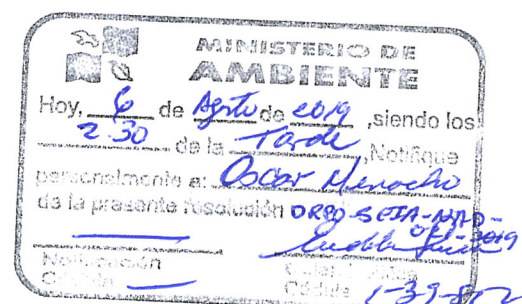 MINISTERIO DE
AMBIENTE
Hoy, 6 de Agosto de 2019, siendo los
2:30 de la Tarde, Notifique
personalmente a: Oscar Menacho
de la presente resolución DRPO-SEIA-NAD-
2019
Notificación
Cédula
Cédula 1-39-